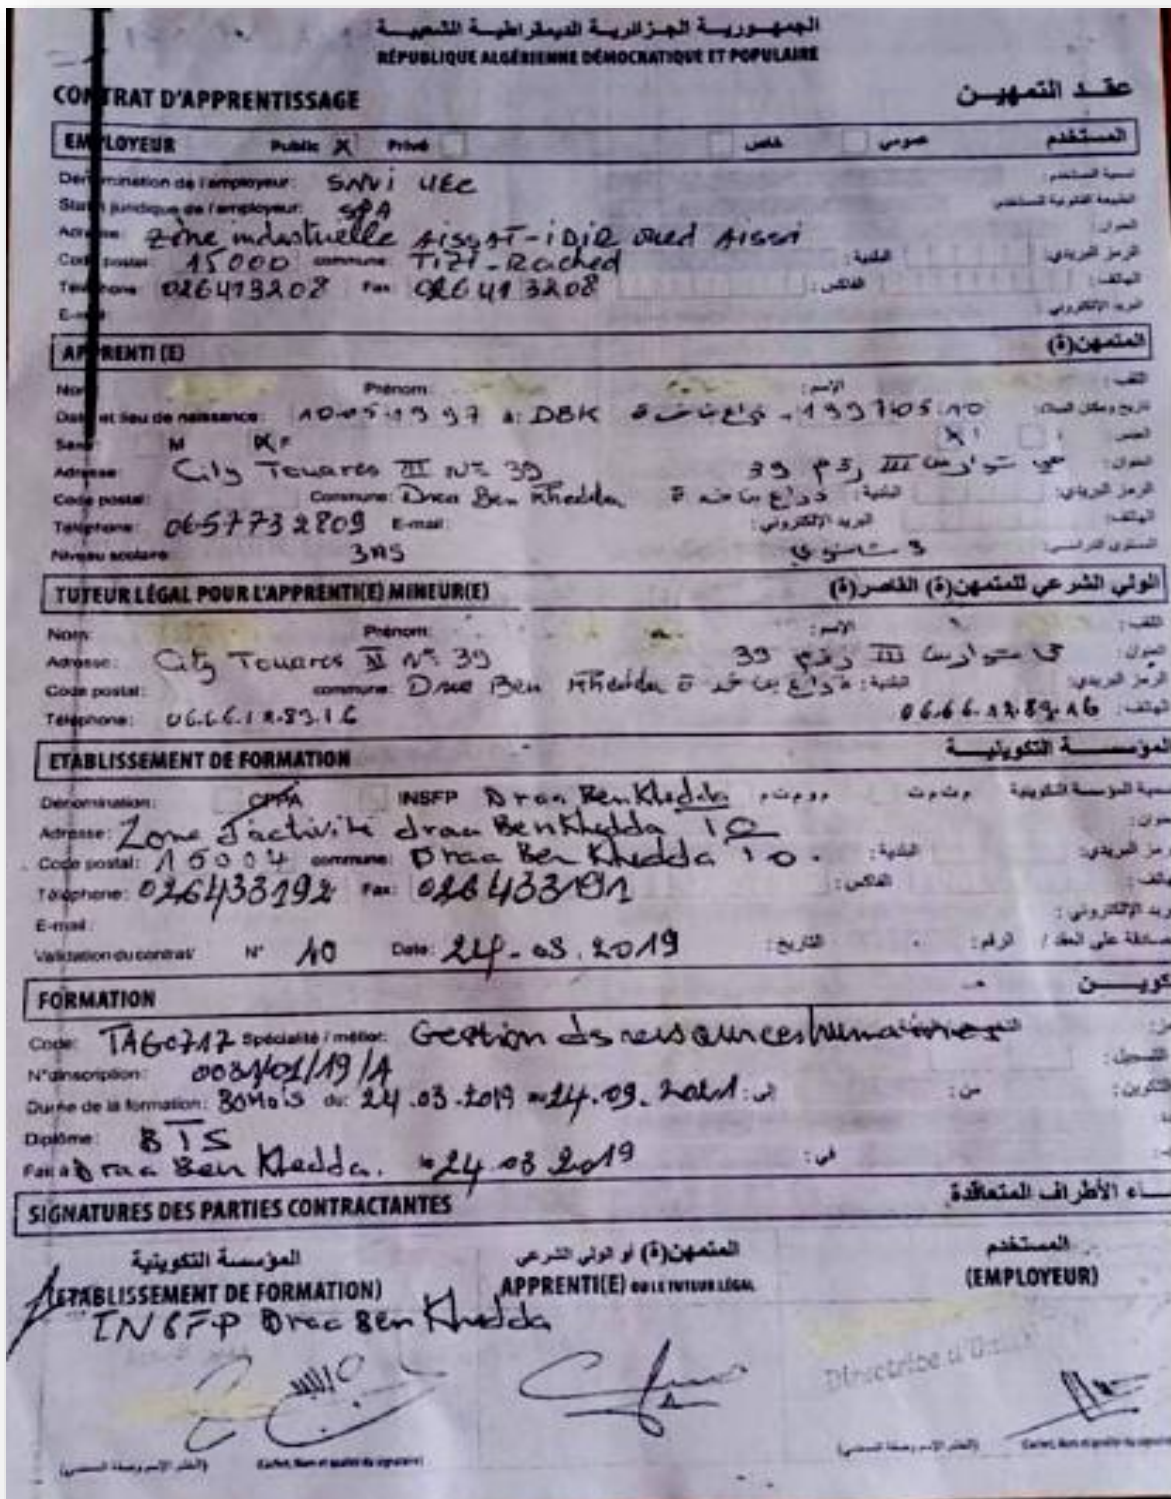 الجمهورية الجزائرية الديمقراطية الشعبية
RÉPUBLIQUE ALGÉRIENNE DÉMOCRATIQUE ET POPULAIRE
CONTRAT D'APPRENTISSAGE عقد التمهين
EMPLOYEUR Public X Privé خاص عمومي المستخدم
Dénomination de l'employeur: SNVI UEC تسمية المستخدم
Statut juridique de l'employeur: SPA الطبيعة القانونية للمستخدم
Adresse: Zône industrielle AISSAT-IDIR oued AISSI العنوان:
Code postal: 15000 commune: TIZI-Rached البلدية: الرمز البريدي:
Téléphone: 026413208 Fax 026413208 الفاكس: الهاتف:
E-mail البريد الإلكتروني:
APPRENTI (E) المتمهن(ة)
Nom Prénom: الإسم: اللقب:
Date et lieu de naissance: 10.05.1997 à: DBK ذراع بن خدة - 1997.05.10 تاريخ ومكان الميلاد:
Sexe: M X F X الجنس
Adresse City Touares III N° 39 حي توارس III رقم 39 العنوان:
Code postal: Commune: Draa Ben Khedda البلدية: ذراع بن خدة الرمز البريدي:
Téléphone: 0657732809 E-mail: البريد الإلكتروني: الهاتف:
Niveau scolaire 3AS 3 ثانوي المستوى الدراسي:
TUTEUR LÉGAL POUR L'APPRENTI(E) MINEUR(E) الولي الشرعي للمتمهن(ة) القاصر(ة)
Nom: Prénom: الإسم: اللقب:
Adresse: City Touares III N° 39 حي توارس III رقم 39 العنوان:
Code postal: commune: Draa Ben Khedda البلدية: ذراع بن خدة الرمز البريدي:
Téléphone: 06.66.12.89.16 06.66.12.89.16 الهاتف:
ETABLISSEMENT DE FORMATION المؤسسة التكوينية
Dénomination: CFPA INSFP Draa Ben Khedda تسمية المؤسسة التكوينية
Adresse: Zone d'activité draa Ben Khedda TO العنوان:
Code postal: 15004 commune: Draa Ben Khedda TO. البلدية: الرمز البريدي:
Téléphone: 026433192 Fax: 026433191 الفاكس: الهاتف:
E-mail: البريد الإلكتروني:
Validation du contrat/ N° 10 Date: 24.03.2019 التاريخ: الرقم: المصادقة على العقد /
FORMATION التكوين
Code: TAG0717 Spécialité / métier: Gestion des ressources humaines
N°d'inscription: 0031/01/19/A التسجيل:
Durée de la formation: 30Mois du: 24.03.2019 au 24.09.2021 إلى: من: التكوين:
Diplôme: BTS
Fait à Draa Ben Khedda. le 24.03.2019 في:
SIGNATURES DES PARTIES CONTRACTANTES الأطراف المتعاقدة
المؤسسة التكوينية المتمهن(ة) أو الولي الشرعي المستخدم
(ETABLISSEMENT DE FORMATION) APPRENTI(E) OU LE TUTEUR LÉGAL (EMPLOYEUR)
INSFP Draa Ben Khedda
(الختم الإسم وصفة الممضي) (Cachet, Nom et qualité du signataire) (الختم الإسم وصفة الممضي) (Cachet, Nom et qualité du signataire)